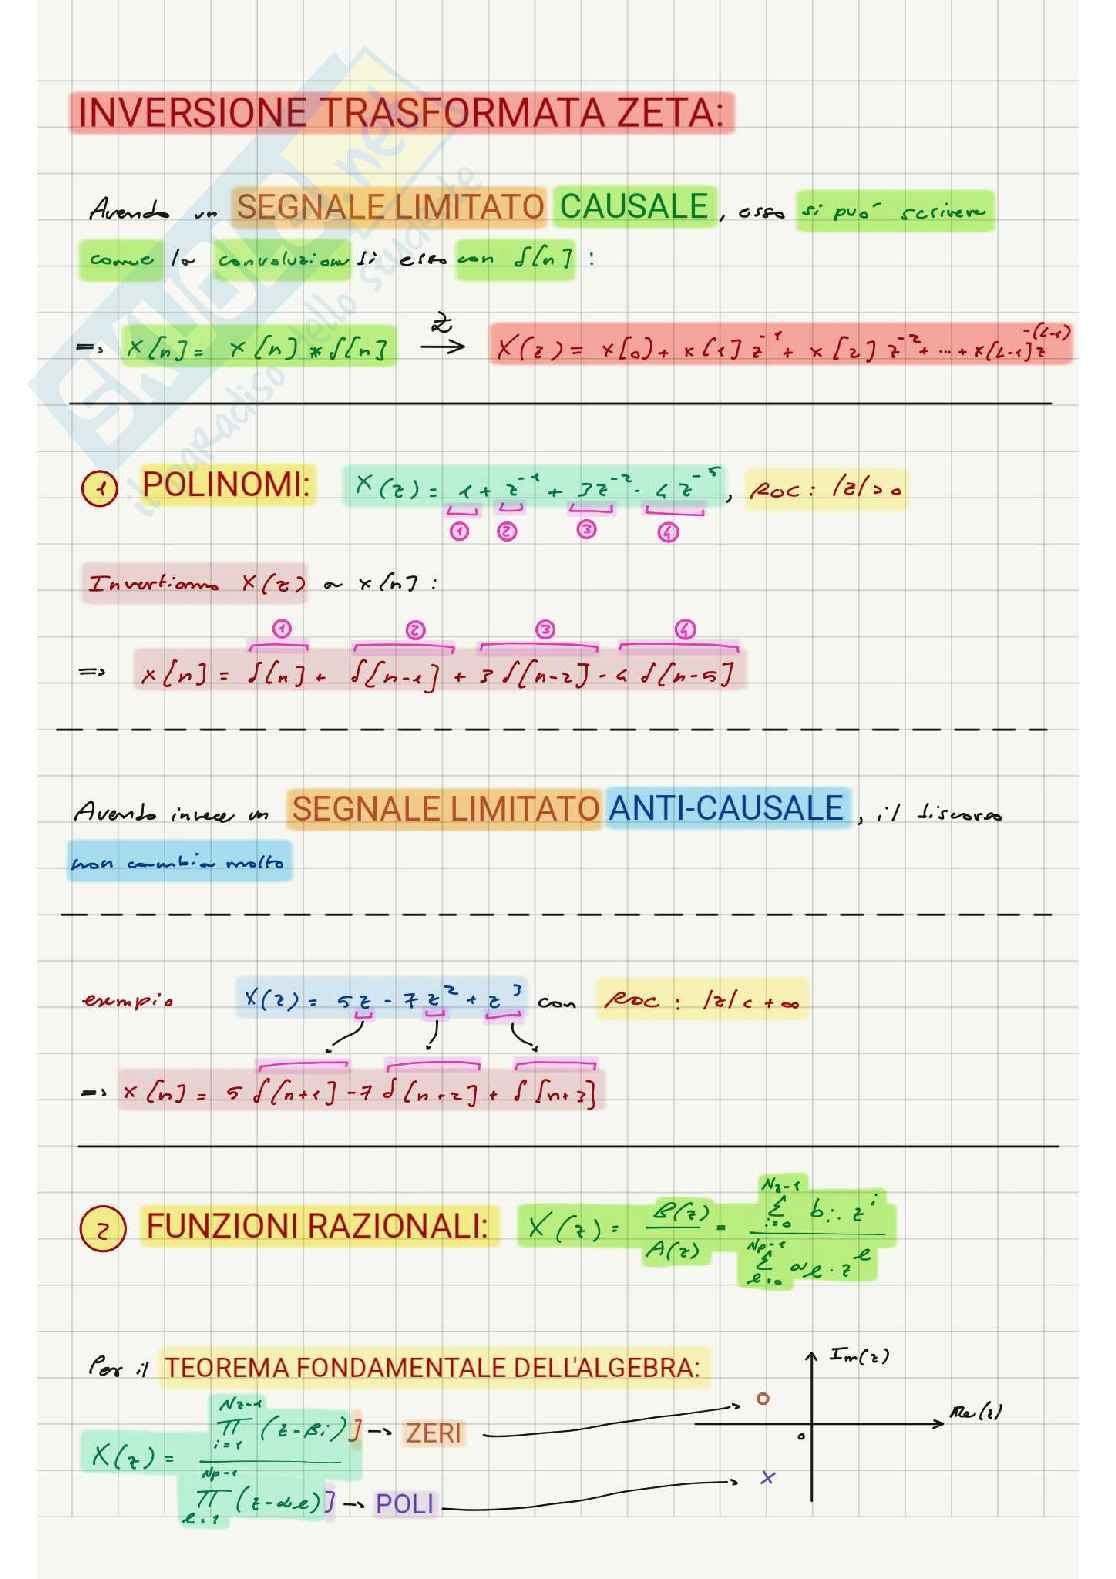 INVERSIONE TRASFORMATA ZETA:
Avendo un SEGNALE LIMITATO CAUSALE, esso si può scrivere
come la convoluzione di esso con δ[n]:
=> x[n] = x[n] * δ[n] →Z X(z) = x[0] + x[1] z^-1 + x[2] z^-2 + ... + x[L-1] z^-(L-1)
① POLINOMI: X(z) = 1 + z^-1 + 3z^-2 - 4z^-5, ROC: |z|>0
① ② ③ ④
Invertiamo X(z) a x[n]:
① ② ③ ④
=> x[n] = δ[n] + δ[n-1] + 3 δ[n-2] - 4 δ[n-5]
Avendo invece un SEGNALE LIMITATO ANTI-CAUSALE, il discorso
non cambia molto
esempio X(z) = 5z - 7z^2 + z^3 con ROC: |z| < +∞
=> x[n] = 5 δ[n+1] - 7 δ[n+2] + δ[n+3]
② FUNZIONI RAZIONALI: X(z) = B(z)/A(z) = Σ_{i=0}^{Nz-1} bi · z^i / Σ_{l=0}^{Np-1} al · z^l
Per il TEOREMA FONDAMENTALE DELL'ALGEBRA:
X(z) = Π_{i=1}^{Nz-1} (z-βi) / Π_{l=1}^{Np-1} (z-αl)
] → ZERI
] → POLI
Im(z)
Re(z)
0
SKUOLA.net
il paradiso dello studente